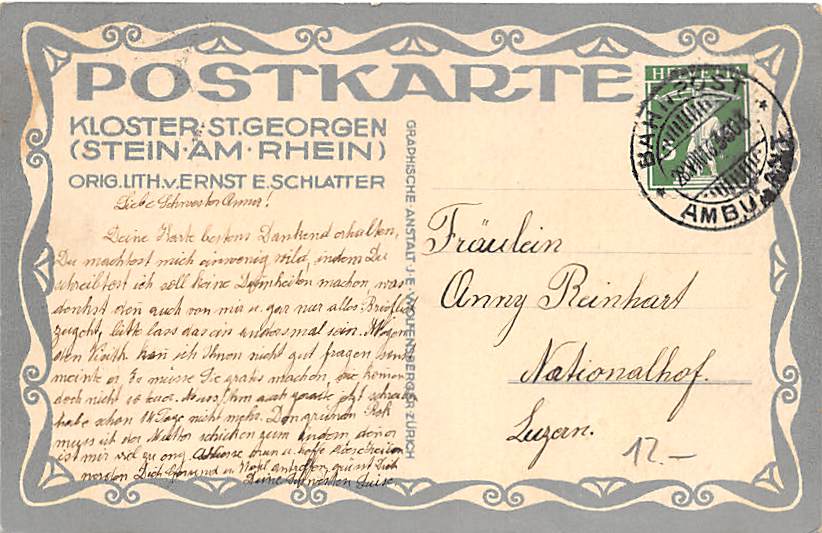 POSTKARTE
KLOSTER·ST.GEORGEN
(STEIN·AM·RHEIN)
ORIG.LITH.v.ERNST E.SCHLATTER
GRAPHISCHE·ANSTALT J·E·WOLFENSBERGER·ZÜRICH
HELVETIA
BAHNPOST
AMBULANT
Liebe Schwester Anna!
Deine Karte bestens Dankend erhalten,
Du machtest mich ein wenig wild, indem Du
schreibtest ich soll keine Dumheiten machen, was
denkst den auch von mir u. gar nur alles
bitte lass das ein andersmal sein. Wegen
den kan ich Ihnen nicht gut fragen, sonst
meinte er Er müsse Sie gratis machen, Sie kennen
doch nicht so euer. Muss ihm auch grade jetzt schreiben
habe schon 14 Tage nicht mehr. Den grünen Rok
muss ich der Mutter schicken zum ändern den er
ist mir viel zu eng. u. hoffe
werden Dich Gesund u. Wohl antreffen, grüsst Dich
Deine Schwester Luise.
Fräulein
Anny Reinhart
Nationalhof.
Luzern.
12.–